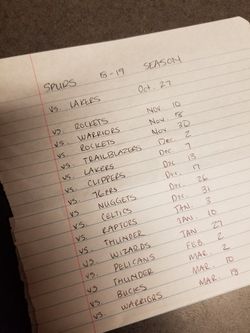 SPURS 18-19 SEASON
VS. LAKERS Oct. 27
VS. ROCKETS Nov 10
VS. WARRIORS Nov 18
VS. ROCKETS Nov 30
VS. TRAILBLAZERS Dec 2
VS. LAKERS Dec 7
VS. CLIPPERS Dec 13
VS. 76ers Dec. 17
VS. NUGGETS Dec. 26
VS. CELTICS Dec. 31
VS. RAPTORS JAN. 3
VS. THUNDER JAN. 10
VS. WIZARDS JAN 27
VS. PELICANS FEB. 2
VS. THUNDER MAR. 2
VS. BUCKS MAR. 10
VS. WARRIORS MAR 18